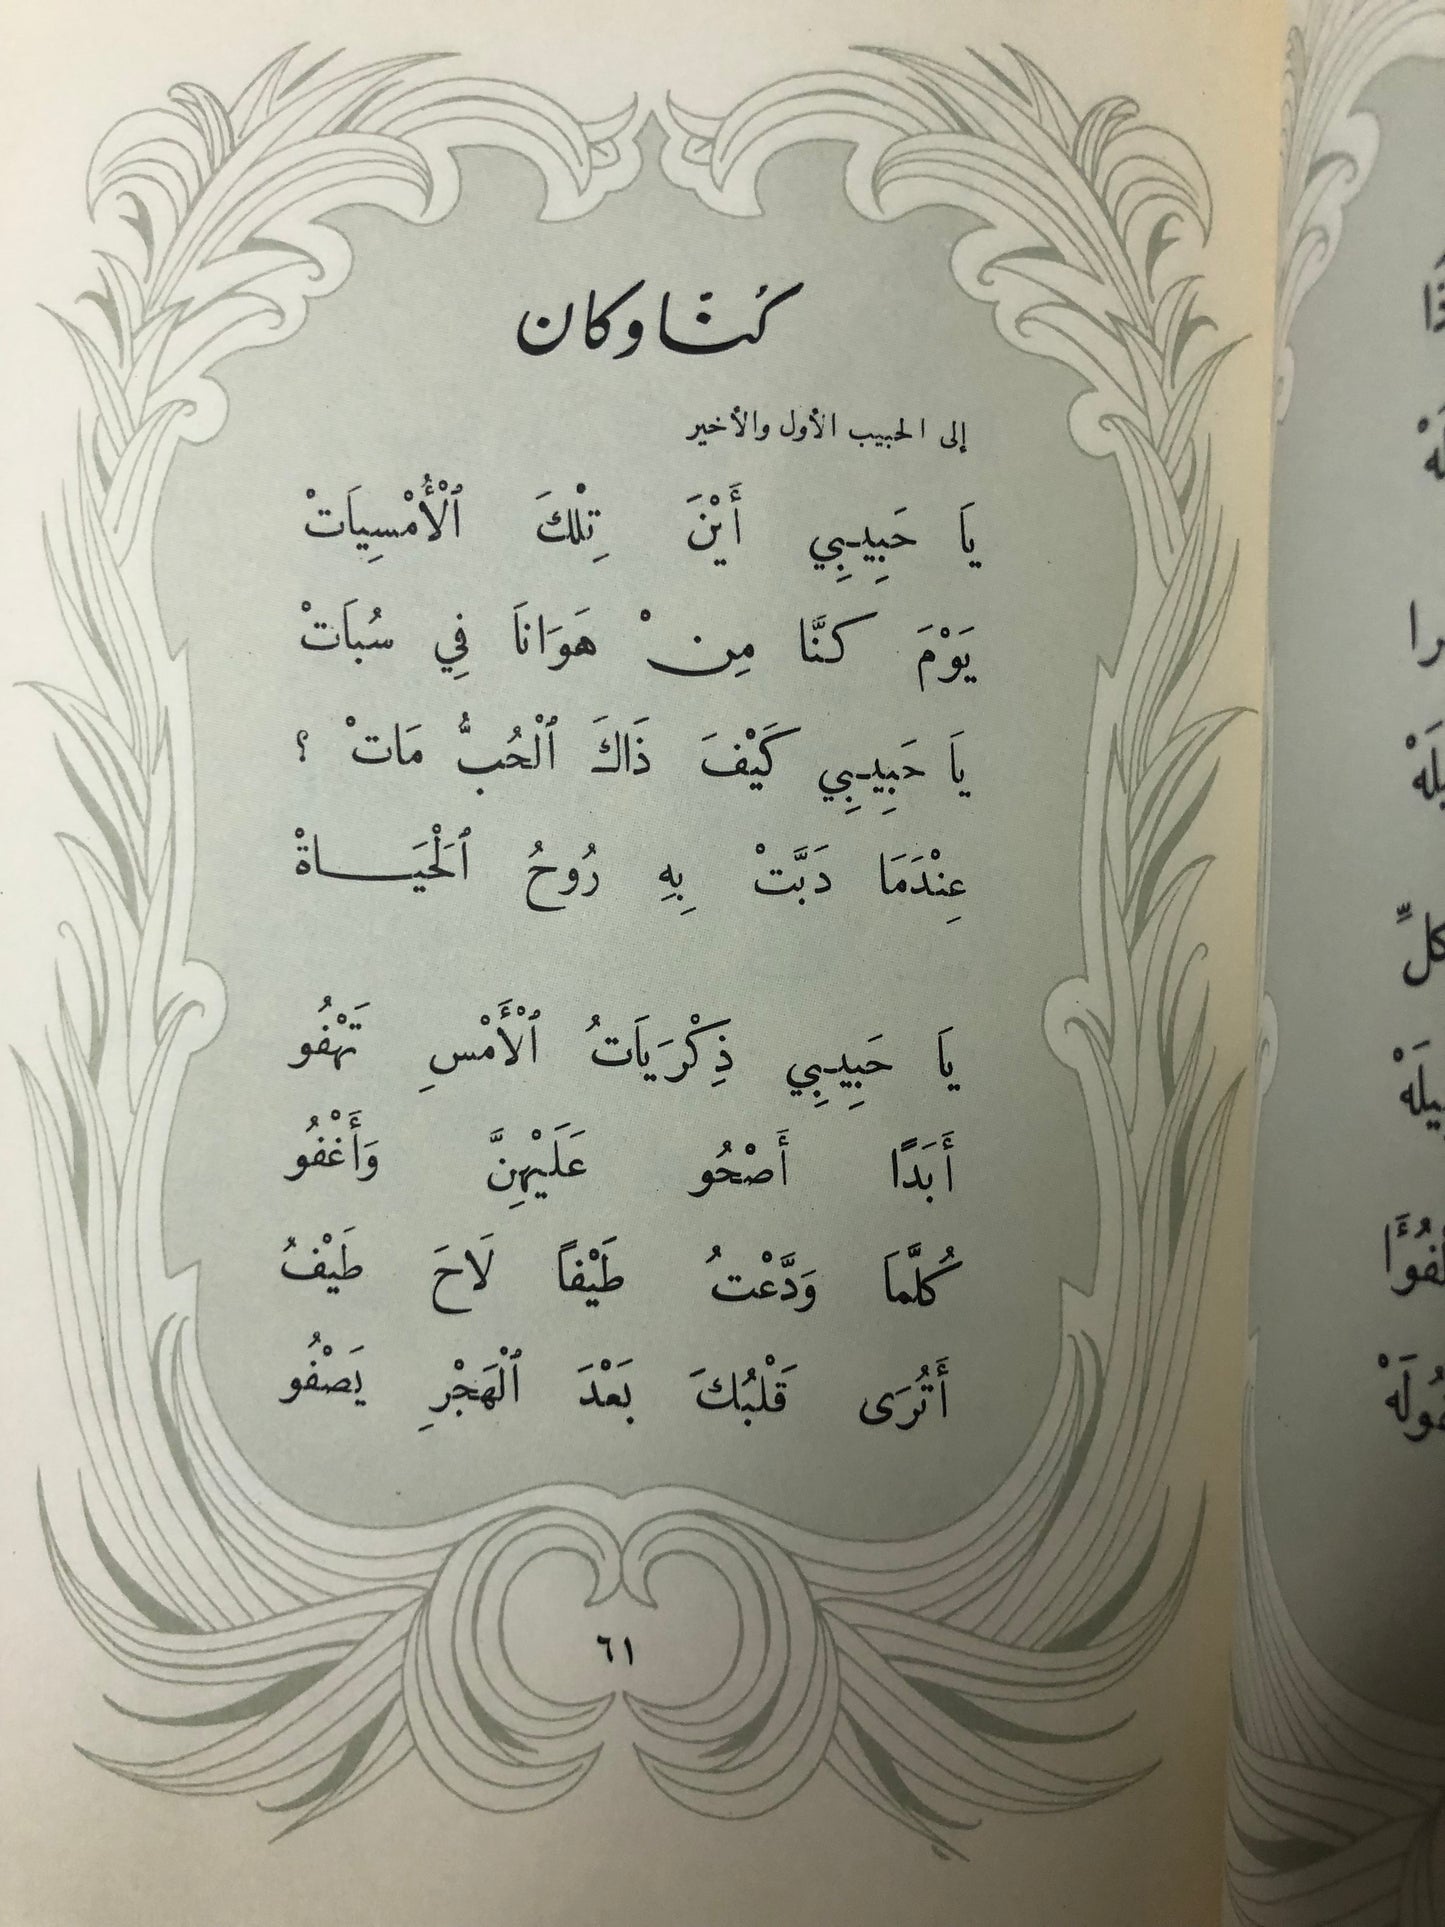 كُنَّا وكان
إلى الحبيب الأول والأخير
يَا حَبِيبِي أَيْنَ تِلْكَ ٱلْأُمْسِيَاتْ
يَوْمَ كنَّا مِنْ هَوَانَا فِي سُبَاتْ
يَا حَبِيبِي كَيْفَ ذَاكَ ٱلْحُبُّ مَاتْ ؟
عِنْدَمَا دَبَّتْ بِهِ رُوحُ ٱلَحْيَاةْ
يَا حَبِيبِي ذِكْرَيَاتُ ٱلْأَمْسِ تَهْفُو
أَبَدًا أَصْحُو عَلَيْهِنَّ وَأَغْفُو
كُلَّمَا وَدَّعْتُ طَيْفاً لَاحَ طَيْفُ
أَتُرَى قَلْبُكَ بَعْدَ ٱلْهَجْرِ يَصْفُو
٦١